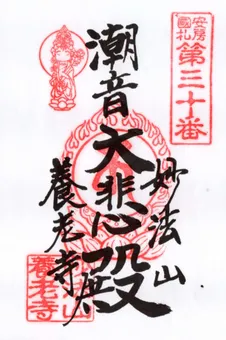 安房
國札
第三十番
潮音
大悲殿
妙法山
養老寺
養老寺